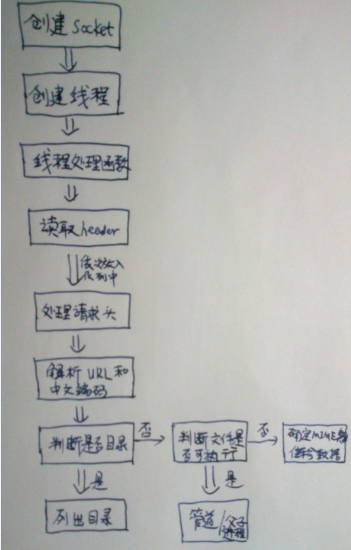 创建Socket
创建线程
线程处理函数
读取header
依次放入
队列中
处理请求头
解析URL和
中文编码
判断是否目录
否
判断文件是
否可执行
否
确定MIME并
传输数据
是
是
列出目录
管道/父子
进程